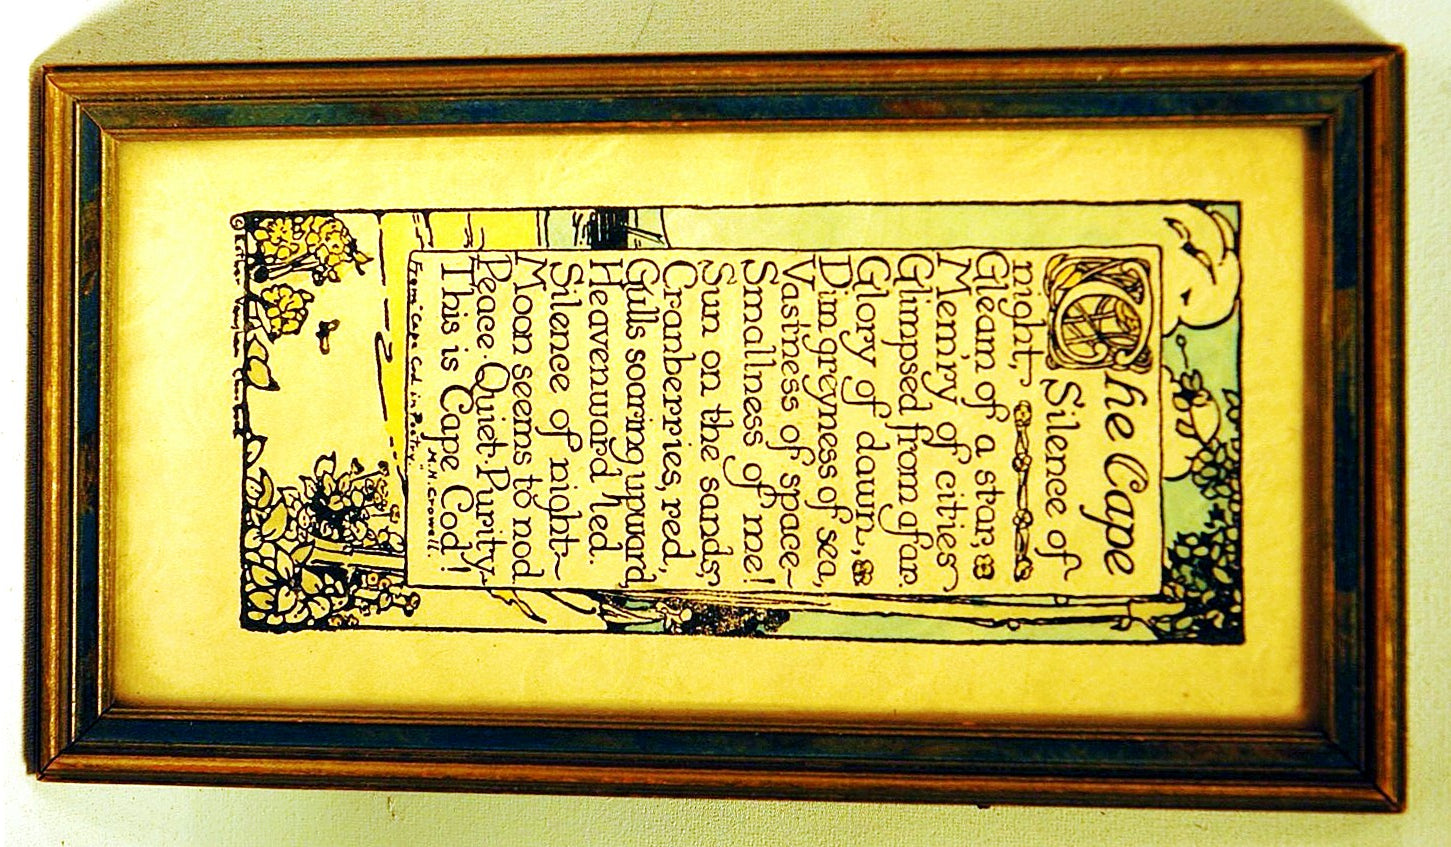 The Cape
Silence of
night,
Gleam of a star,
Mem'ry of cities
Glimpsed from afar.
Glory of dawn,
Dim greyness of sea,
Vastness of space~
Smallness of me!
Sun on the sands,
Cranberries, red,
Gulls soaring upward,
Heavenward led.
Silence of night~
Moon seems to nod
Peace-Quiet-Purity,
This is Cape Cod!
From "Cape Cod in Poetry"
M.N. Crowell.
©